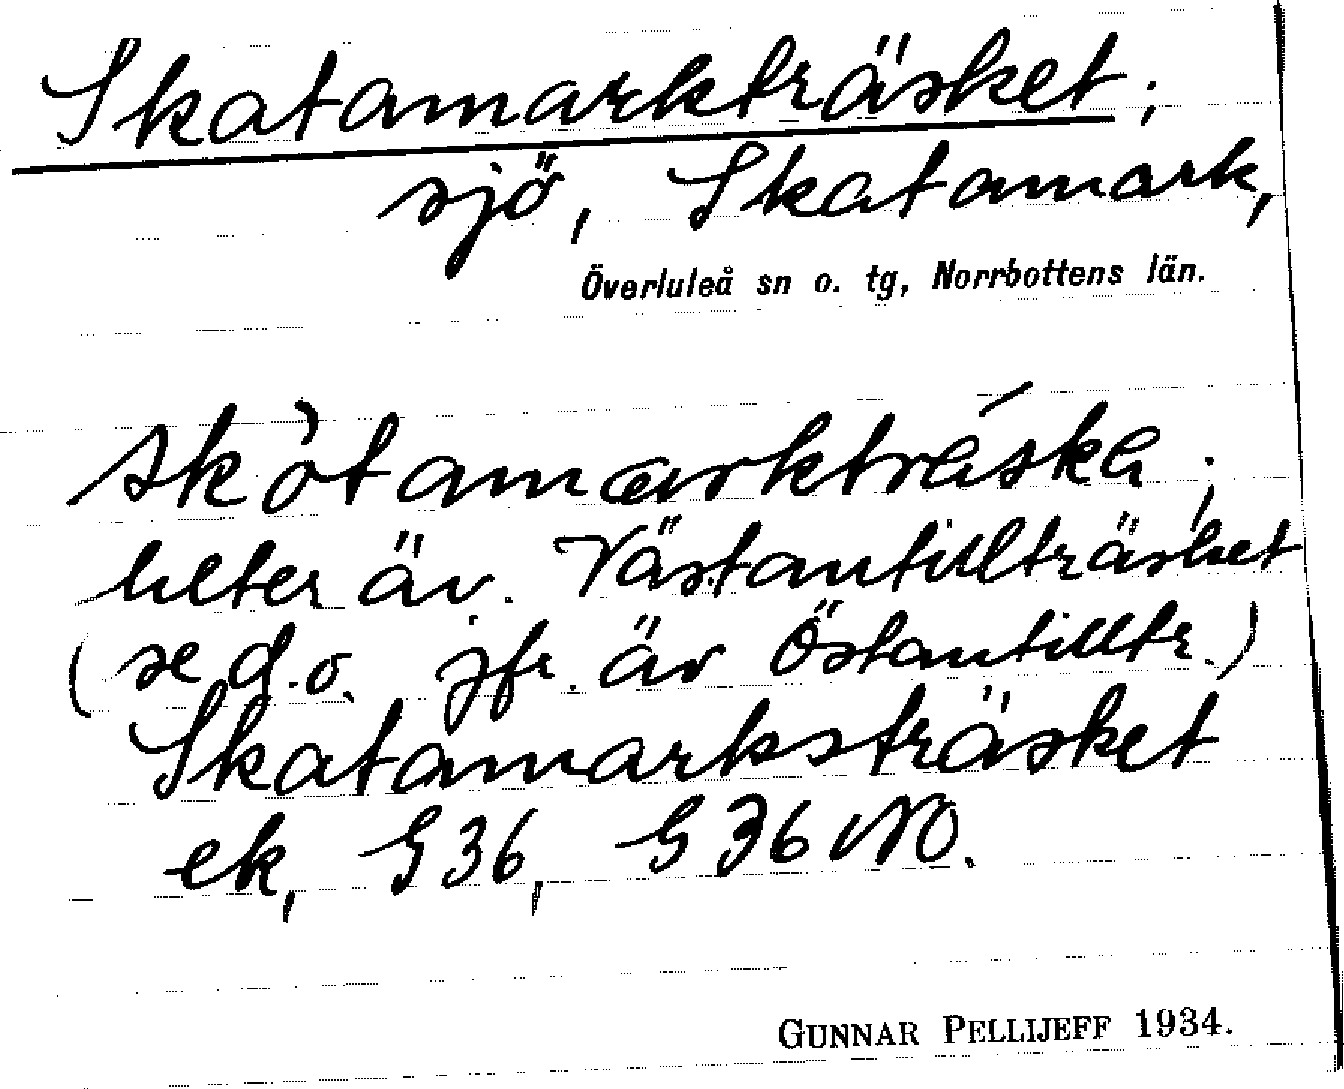 Skatamarkträsket;
sjö, Skatamark,
Överluleå sn o. tg, Norrbottens län.
skò̀tamarktráska;
heter äv. Västantillträsket
(se d.o. jfr. äv Östantilltr.)
Skatamarksträsket
ek, G36, G36NO.
GUNNAR PELLIJEFF 1934.